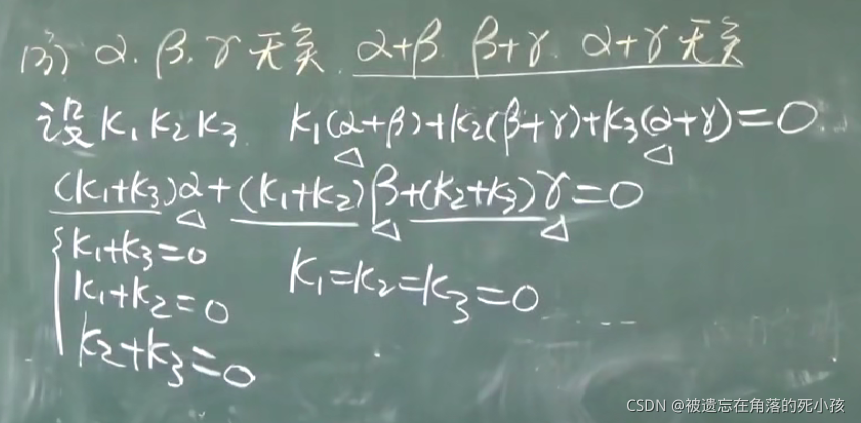 例) α. β. γ 无关. α+β. β+γ. α+γ 无关
设 k₁ k₂ k₃. k₁(α+β)+k₂(β+γ)+k₃(α+γ)=0
(k₁+k₃)α+(k₁+k₂)β+(k₂+k₃)γ=0
{k₁+k₃=0
k₁+k₂=0 k₁=k₂=k₃=0
k₂+k₃=0
CSDN @被遗忘在角落的死小孩